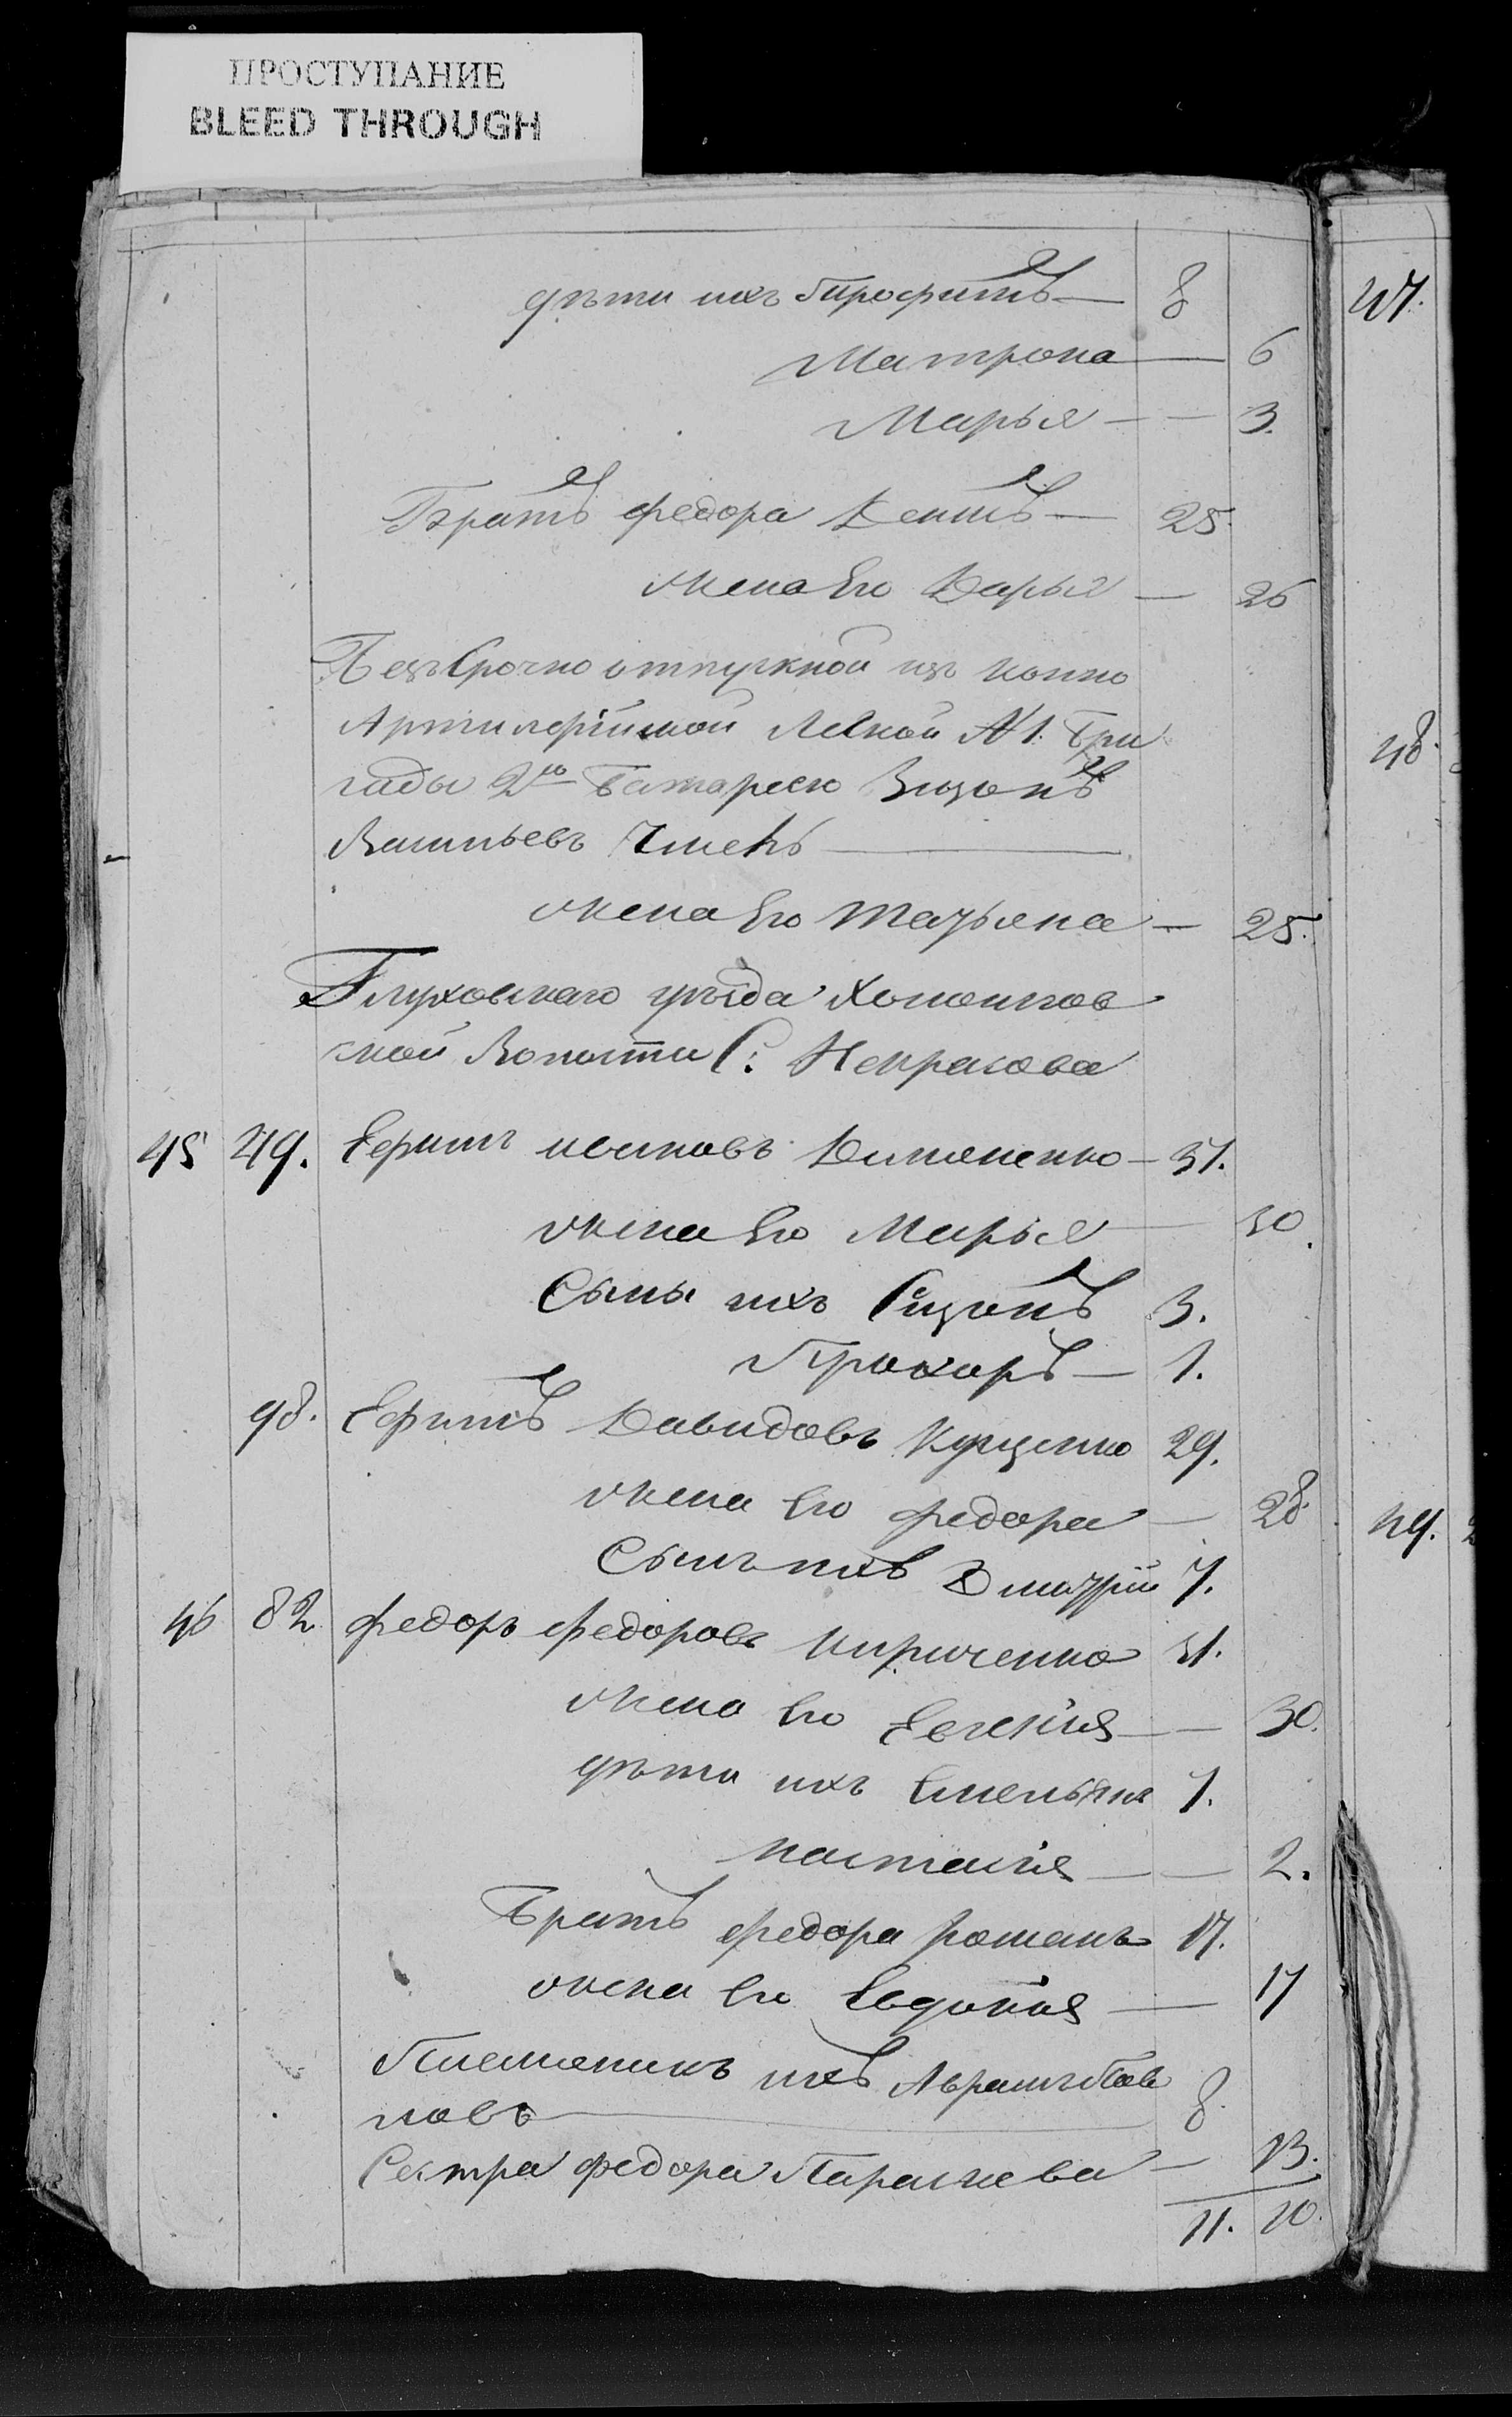 ПРОСТУПАНИЕ
BLEED THROUGH
дѣти ихъ Трофимъ — 8
Матрона — 6
Марья — 3.
Братъ федора Демидъ — 25
жена Его Дарья — 26
Безъ Срочно отпускной изъ конно
Артилерійской Легкой №1. Бри
гады 2ю Батарею
Васильевъ
жена Его Татьяна — 25.
Глуховскаго уѣзда
ской Волости С. Некрасова
45 49. Ефимъ Димоненко — 37.
жена Его Марья — 30.
Сыны ихъ 3.
Прохоръ — 1.
98. Ефимъ Давидовъ Куценко 29.
жена Его федора — 28.
Сынъ ихъ Дмитрій 7.
46 82 федоръ федоровъ Кириченко 31.
жена Его Евгенія — 30.
дѣти ихъ Емельянъ 7.
настасія — 2.
Братъ федора Романъ 17.
жена Его Евдокія — 17
Племяникъ ихъ Аврамъ Пав
ловъ — 8.
Сестра федора Параскева — 13.
11. 10.
47.
48.
49.